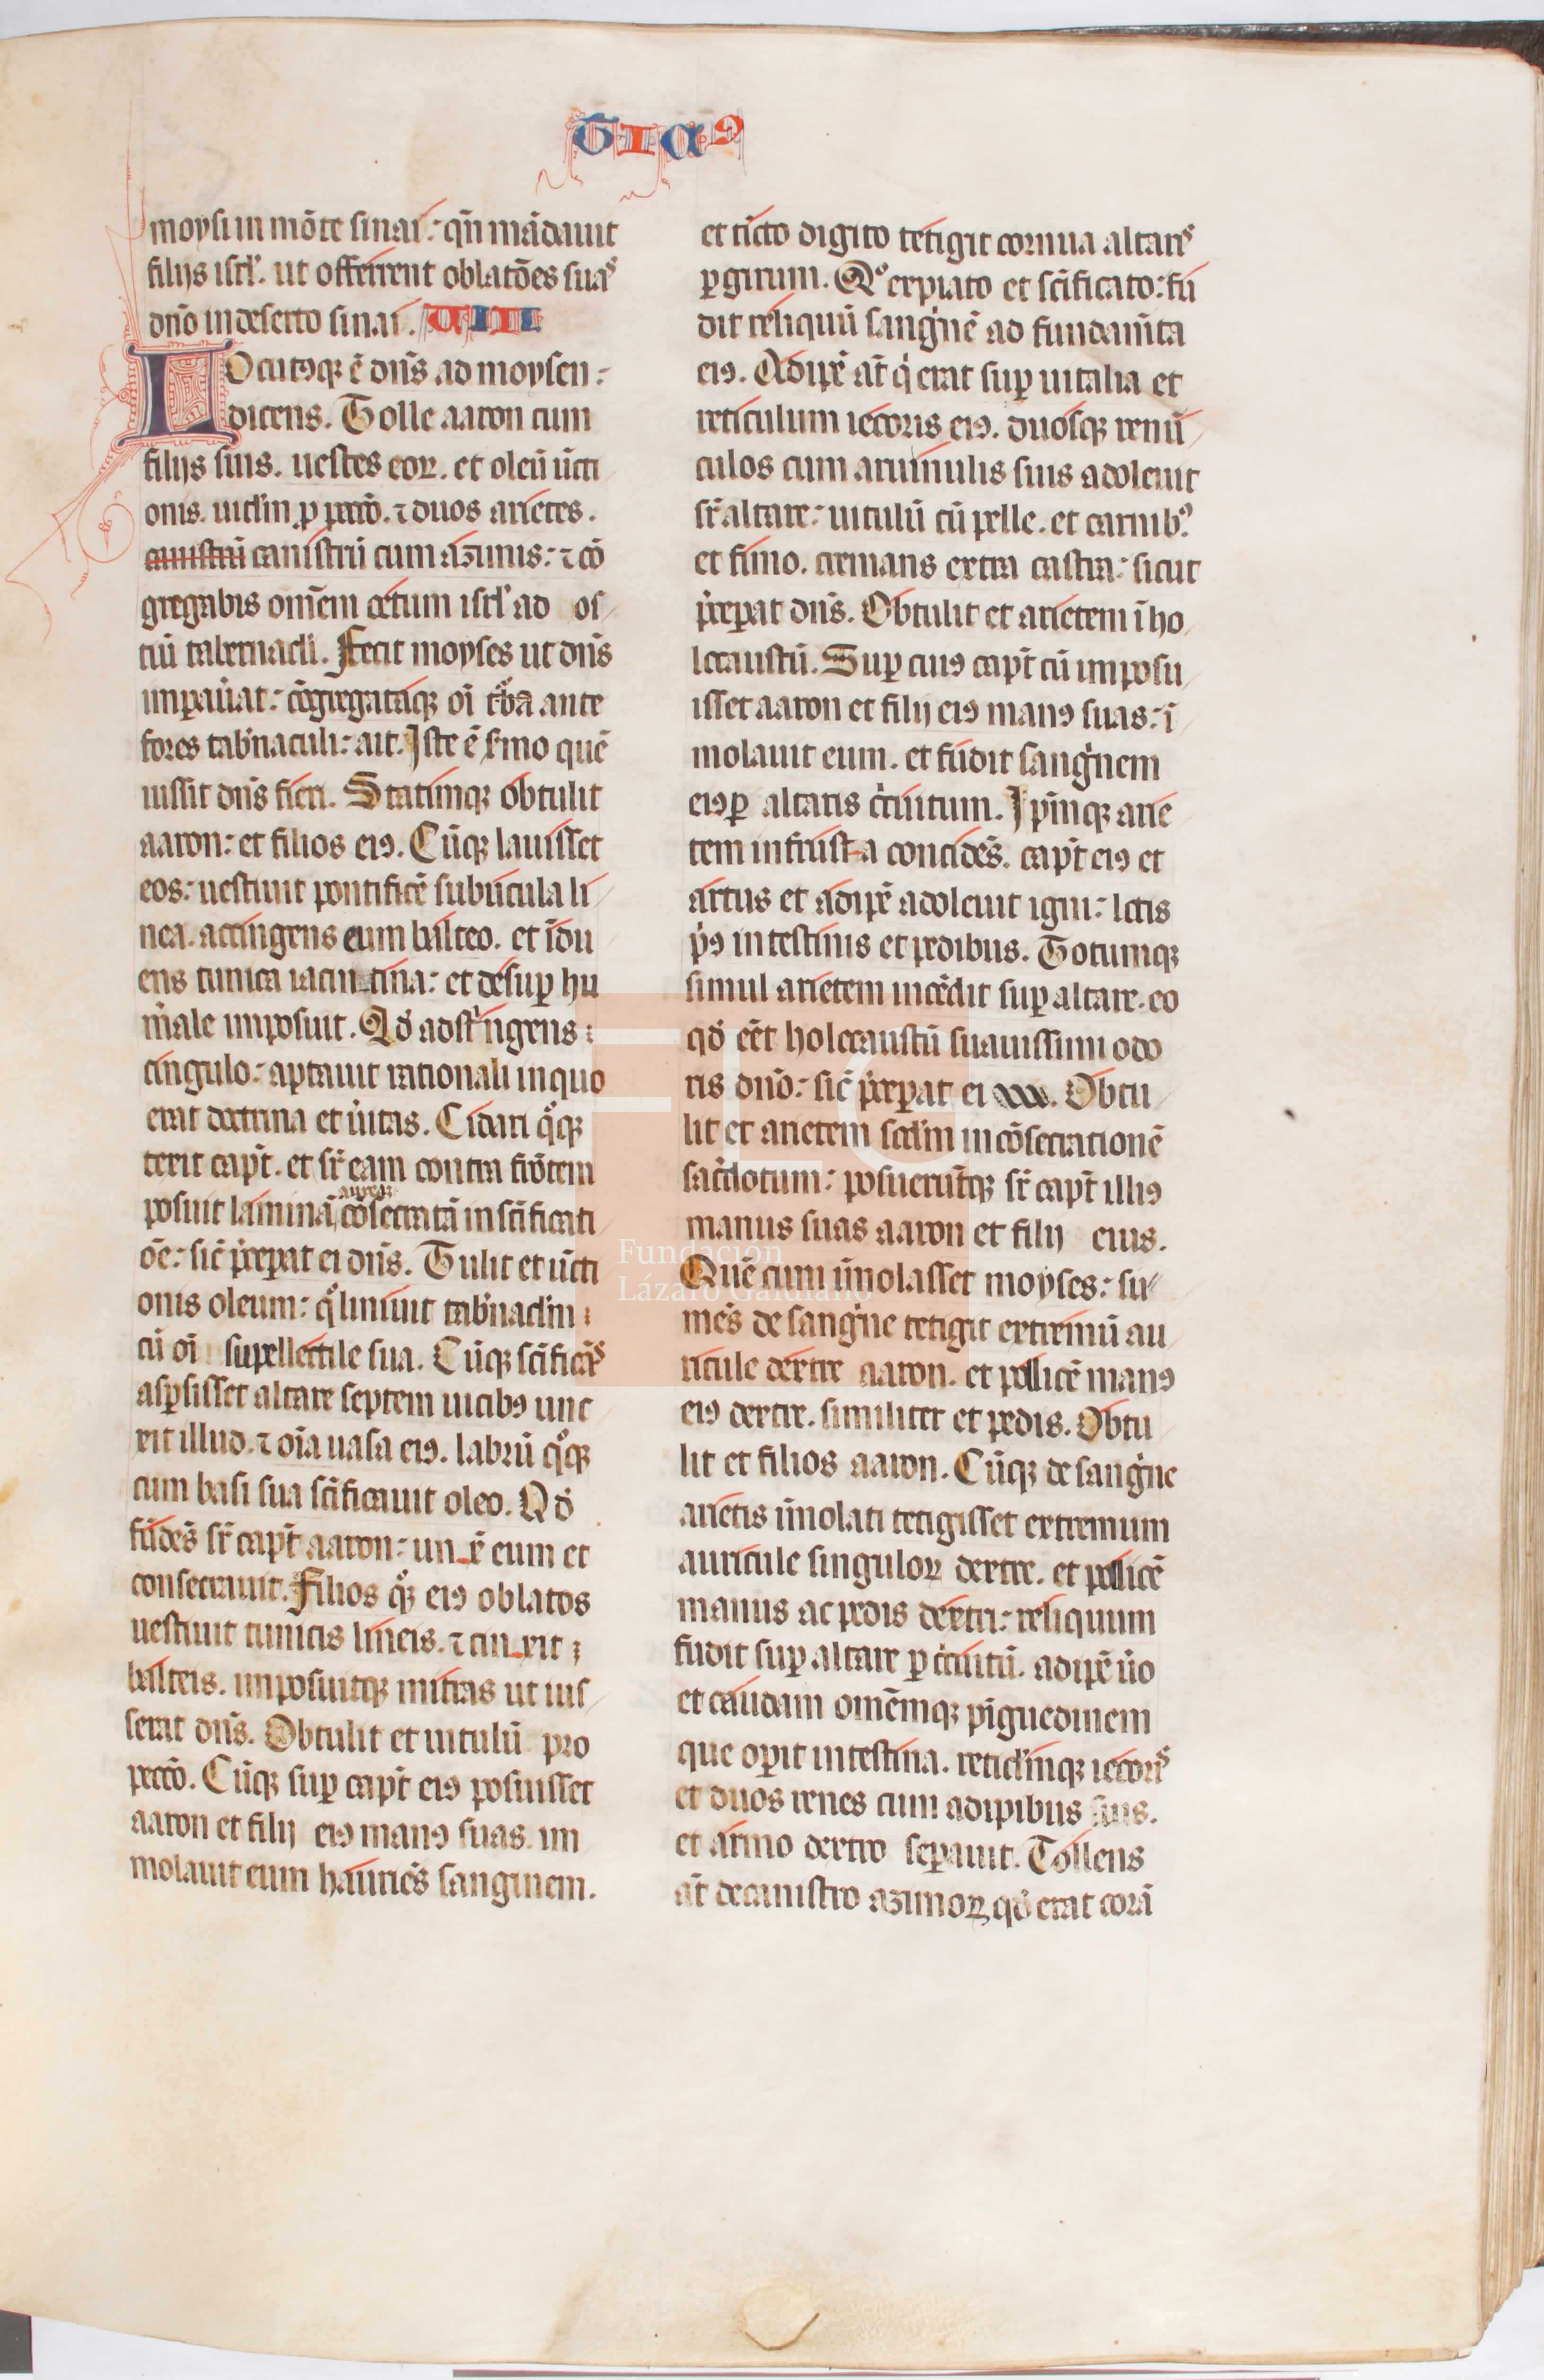 TIAꝰ
moysi in mōte sinai: qn̄ mādauit
filijs isrl'. ut offerrent oblatōes suas
dn̄o in deserto sinai. VIII
LOcutꝰqꝫ ē dn̄s ad moysen:
dicens. Tolle aaron cum
filijs suis. uestes eoꝝ. et oleū ūcti
onis. uitlm̄ ꝓ pctō. ⁊ duos arietes.
canistrū canistrū cum azimis: ⁊ cō
gregabis om̄em cetum isrl' ad os
tiū tabernacli. Fecit moyses ut dn̄s
imꝑauat: cōgregataqꝫ oī t'ba ante
fores tab'naculi: ait. Iste ē s'mo quē
iussit dn̄s fieri. Statimqꝫ obtulit
aaron: et filios eiꝰ. Cūqꝫ lauisset
eos: uestiuit pontificē subucula li
nea. accingens eum balteo. et īdu
ens tunica iacintina: et desuꝑ hu
m'ale imposuit. Qd' adst'ngens
cingulo: aptauit rationali in quo
erat doctrina et u'itas. Cidari qͦqꝫ
texit capt̄. et sr̄ eam contra frōtem
posuit laminā aureā cōsecratā in sc̄ificati
ōe: sic̄ p̄ceꝑat ei dn̄s. Tulit et ūcti
onis oleum: qͦ liniuit tab'naclm̄
cū oī supellectile sua. Cūqꝫ sc̄ificās
asꝑsisset altare septem uicibꝰ unc
xit illud. ⁊ oīa uasa eiꝰ. labrū qͦqꝫ
cum basi sua sc̄ificauit oleo. Qd'
fūdēs sr̄ capt̄ aaron: unxē eum et
consecrauit. Filios qͦqꝫ eiꝰ oblatos
uestiuit tunicis lineis. ⁊ cinxit
balteis. imposuitqꝫ mitras ut ius
serat dn̄s. Obtulit et uitulū pro
pctō. Cūqꝫ suꝑ capt̄ eiꝰ posuisset
aaron et filij eiꝰ manꝰ suas. im
molauit eum hauriēs sanguinem.
et tīcto digito tetigit cornua altaris
ꝑ girum. Qͦ expiato et sc̄ificato: fū
dit reliquū sangine ad fundam̄ta
eiꝰ. Adipē at̄ q' erat suꝑ uitalia et
reticulum iecoris eiꝰ. duosqꝫ renū
culos cum aruinulis suis adoleuit
sr̄ altare: uitulū cū pelle. et carnibꝰ
et fimo. cremans extra castra: sicut
p̄ceꝑat dn̄s. Obtulit et arietem ī ho
locaustū. Suꝑ cuiꝰ capt̄ cū imposu
isset aaron et filij eiꝰ manꝰ suas: ī
molauit eum. et fudit sang'nem
eiꝰ ꝑ altaris c'cuitum. Ipm̄qꝫ arie
tem in frusta concidēs. capt̄ eiꝰ et
artus et adipē adoleuit igni: lotis
p'ꝰ intestinis et pedibus. Totumqꝫ
simul arietem incēdit suꝑ altare. eo
qd' eēt holocaustū suauissimi odo
ris dn̄o: sic̄ p̄ceꝑat ei xxx. Obtu
lit et arietem scdm̄ in cōsecrationē
sac'dotum: posuerūtqꝫ sr̄ capt̄ illiꝰ
manus suas aaron et filij eius.
Quē cum īmolasset moyses: su
mēs de sang'ne tetigit extremū au
ricule dextre aaron. et pollicē manꝰ
eiꝰ dextre. similiter et pedis. Obtu
lit et filios aaron. Cūqꝫ de sang'ne
arietis īmolati tetigisset extremum
auricule singuloꝝ dextre. et pollicē
manus ac pedis dextri: reliquum
fudit suꝑ altare ꝑ c'cuitū. adipē u'o
et caudam omēmqꝫ piguedinem
que oꝑit intestina. reticlm̄qꝫ iecoris
et duos renes cum adipibus suis.
et armo dextro seꝑauit. Tollens
at̄ de canistro azimoꝝ, qd' erat corā
Fundación
Lázaro Galdiano